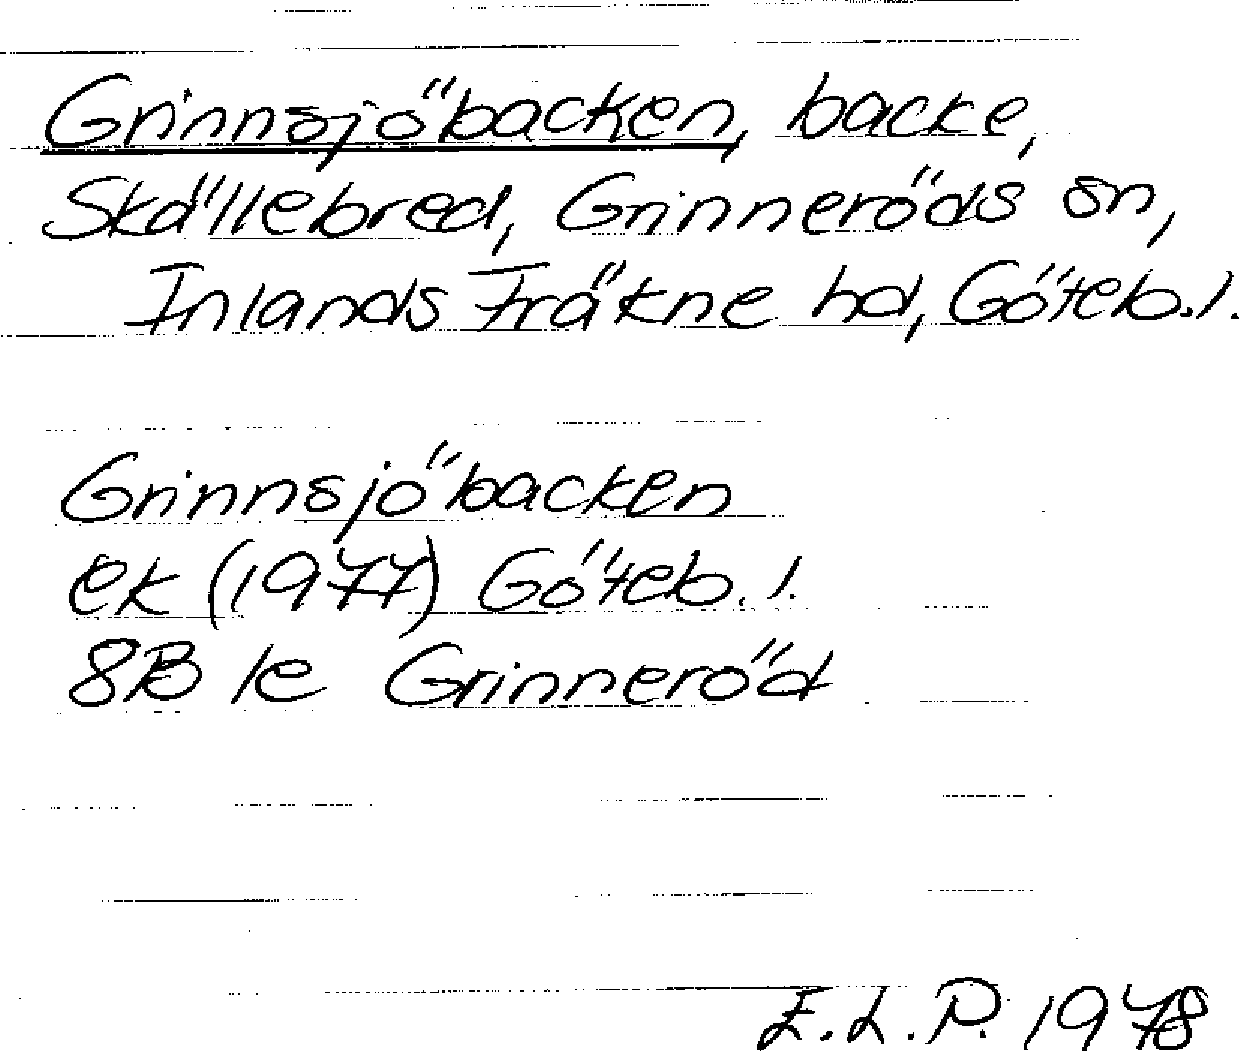 Grinnsjöbacken, backe,
Skällebred, Grinneröds sn,
Inlands Fräkne hd, Göteb. l.
Grinnsjöbacken
ek (1977) Göteb. l.
8B 1e Grinneröd
E. L. P. 1978